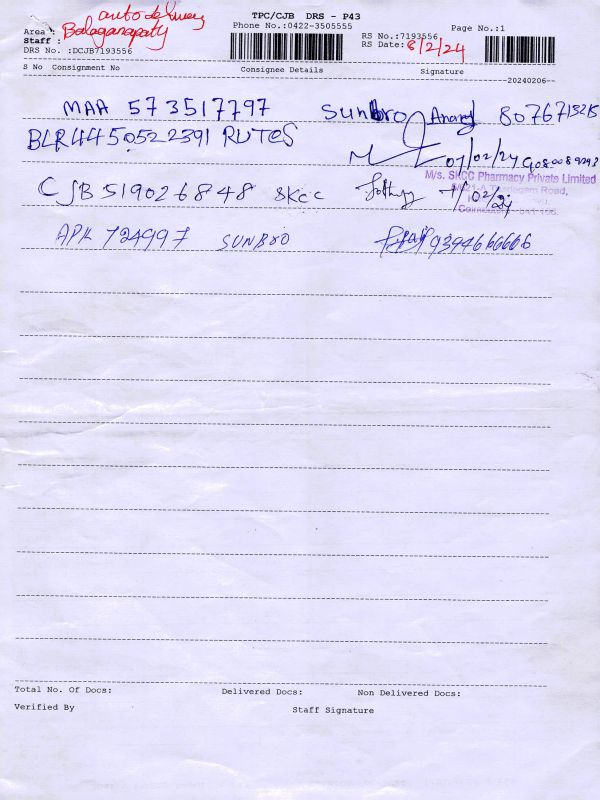 auto delivery
TPC/CJB DRS - P43
Area : Balaganapaty
Phone No.:0422-3505555
Page No.:1
Staff :
RS No.:7193556
DRS No. :DCJB7193556
RS Date: 8/2/24
S No Consignment No Consignee Details Signature
20240206
MAA 573517797 Sunbro Anand
BLR4450522391 RUTES
07/02/24
M/s. SKCC Pharmacy Private Limited
CJB 519026848 SKCC
Road,
7/02/24
APH 724997 SUNBRO 9394666666
Total No. Of Docs: Delivered Docs: Non Delivered Docs:
Verified By Staff Signature